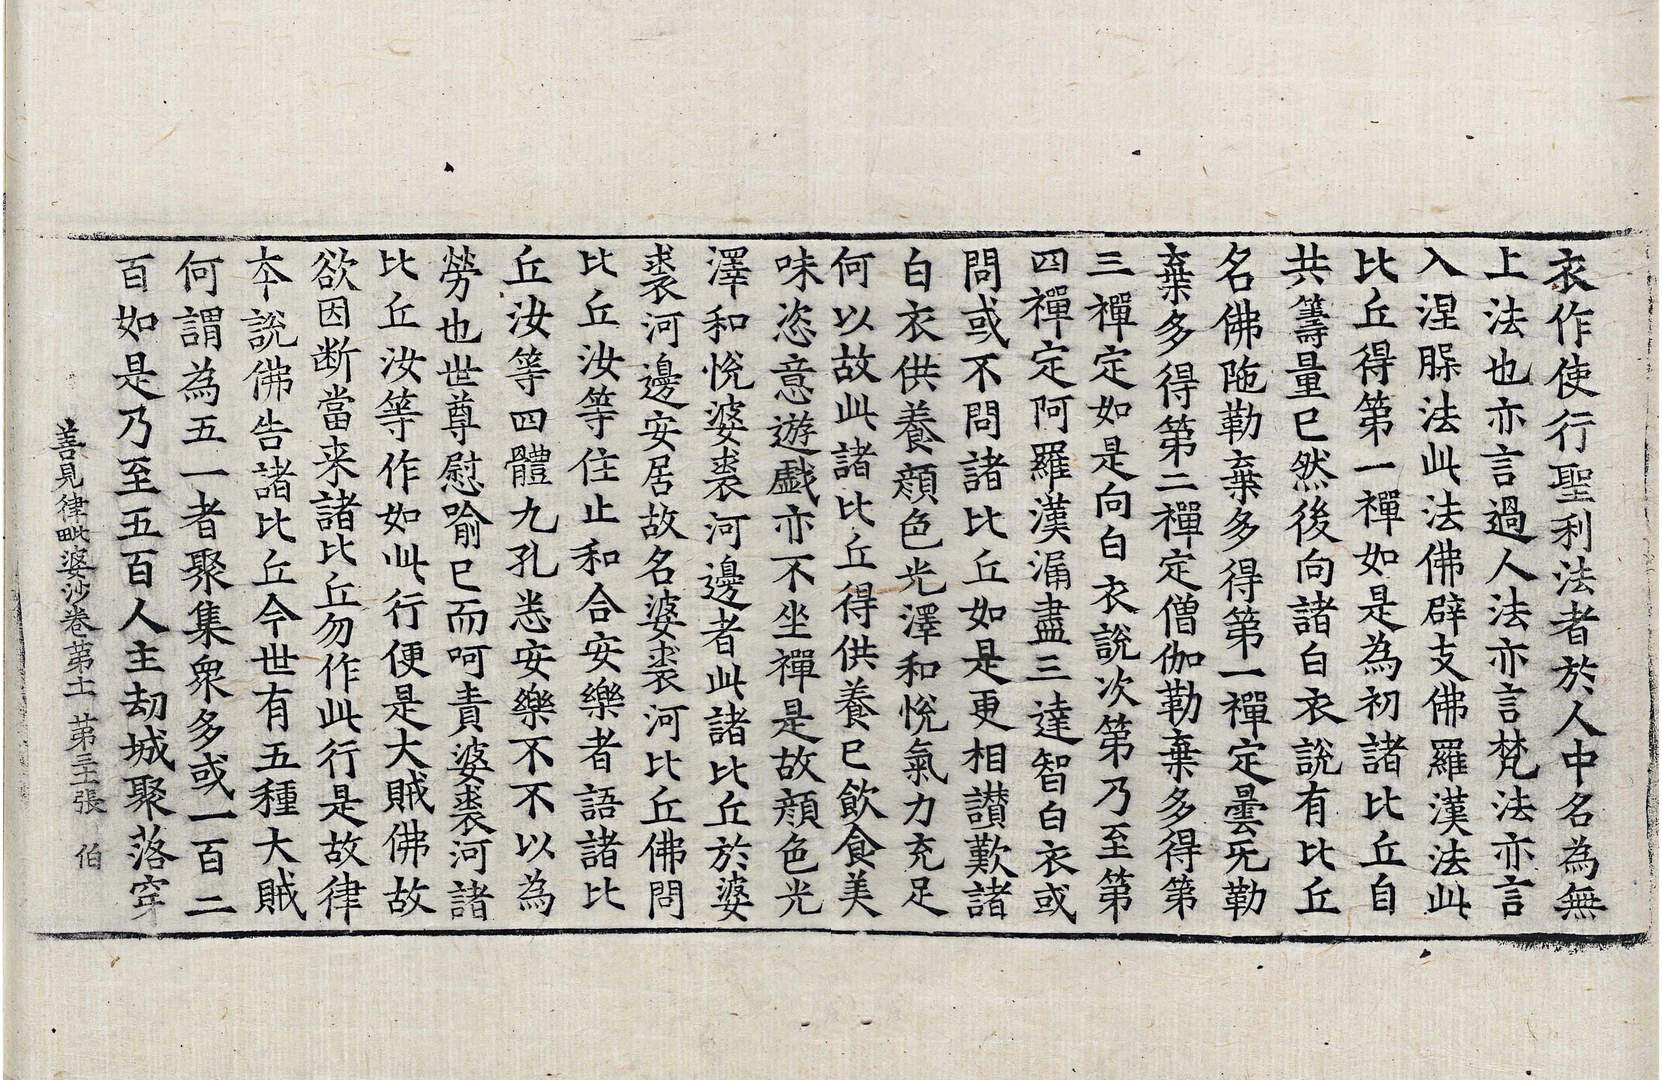 衣作使行聖利法者於人中名為無
上法也亦言過人法亦言梵法亦言
入涅脲法此法佛辟支佛羅漢法此
比丘得第一禪如是為初諸比丘自
共籌量已然後向諸白衣說有比丘
名佛陁勒棄多得第一禪定曇无勒
棄多得第二禪定僧伽勒棄多得第
三禪定如是向白衣說次第乃至第
四禪定阿羅漢漏盡三達智白衣或
問或不問諸比丘如是更相讃歎諸
白衣供養顔色光澤和悅氣力充足
何以故此諸比丘得供養已飲食美
味恣意遊戱亦不坐禪是故顔色光
澤和悅婆裘河邊者此諸比丘於婆
裘河邊安居故名婆裘河比丘佛問
比丘汝等住止和合安樂者語諸比
丘汝等四體九孔悉安樂不不以為
勞也世尊慰喻已而呵責婆裘河諸
比丘汝等作如此行便是大賊佛故
欲因断當来諸比丘勿作此行是故律
夲說佛告諸比丘今世有五種大賊
何謂為五一者聚集衆多或一百二
百如是乃至五百人主劫城聚落穿
善見律毗婆沙卷苐十一 苐三張 伯